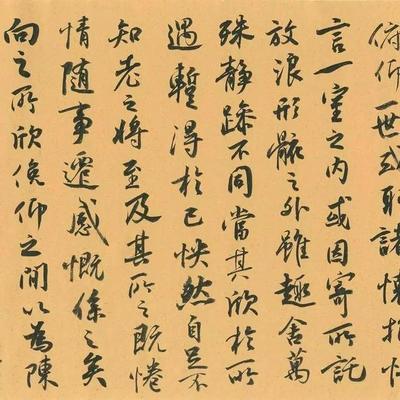 俯仰一世或取諸懷抱悟
言一室之内或因寄所託
放浪形骸之外雖趣舍萬
殊静躁不同當其欣於所
遇蹔得於己怏然自足不
知老之將至及其所之既惓
情隨事遷感慨係之矣
向之所欣俛仰之閒以為陳